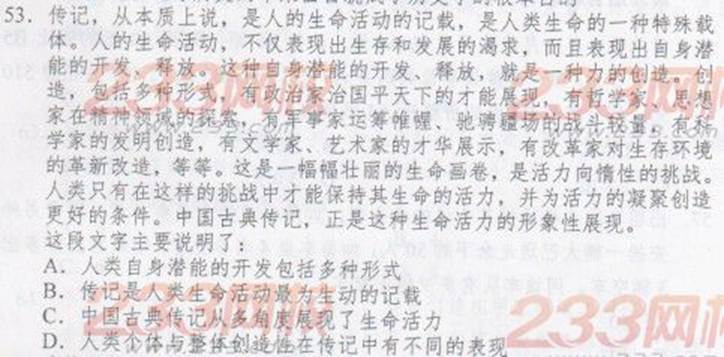 53. 传记，从本质上说，是人的生命活动的记载，是人类生命的一种特殊载
体。人的生命活动，不仅表现出生存和发展的渴求，而且表现出自身潜
能的开发、释放。这种自身潜能的开发、释放，就是一种力的创造。创
造，包括多种形式，有政治家治国平天下的才能展现，有哲学家、思想
家在精神领域的探索，有军事家运筹帷幄、驰骋疆场的战斗较量，有科
学家的发明创造，有文学家、艺术家的才华展示，有改革家对生存环境
的革新改造，等等。这是一幅幅壮丽的生命画卷，是活力向惰性的挑战。
人类只有在这样的挑战中才能保持其生命的活力，并为活力的凝聚创造
更好的条件。中国古典传记，正是这种生命活力的形象性展现。
这段文字主要说明了：
A．人类自身潜能的开发包括多种形式
B．传记是人类生命活动最为生动的记载
C．中国古典传记从多角度展现了生命活力
D．人类个体与整体创造性在传记中有不同的表现
233网校
233网校
233网校
233网校